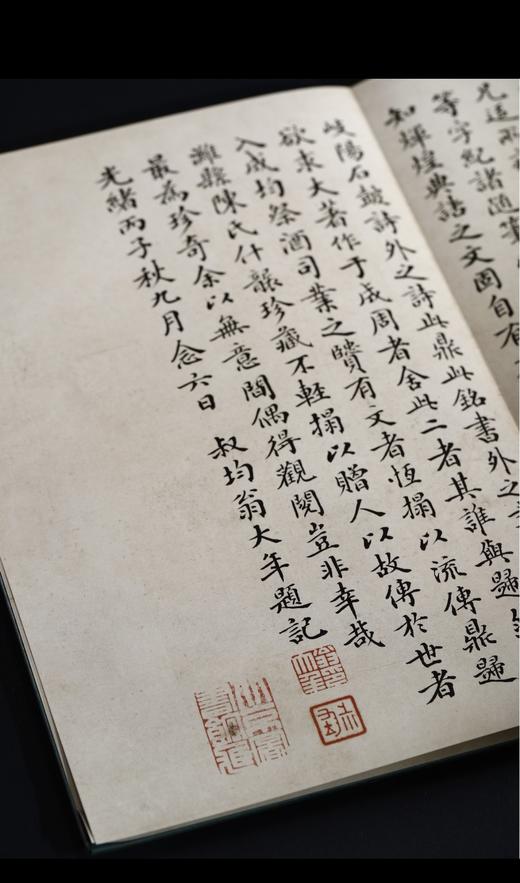 等字紀諸
知輝煌典誥之文固自有
岐陽石鼓詩外之詩此鼎此銘書外之
欲求大著作于成周者舍此二者其誰與歸
入成均祭酒司業之有文者恆搨以流傳鼎歸
濰縣陳氏什襲珍藏不輕搨以贈人以故傳於世者
最為珍奇余以無意間偶得觀閱豈非幸哉
光緒丙子秋九月念六日 叔均翁大年題記